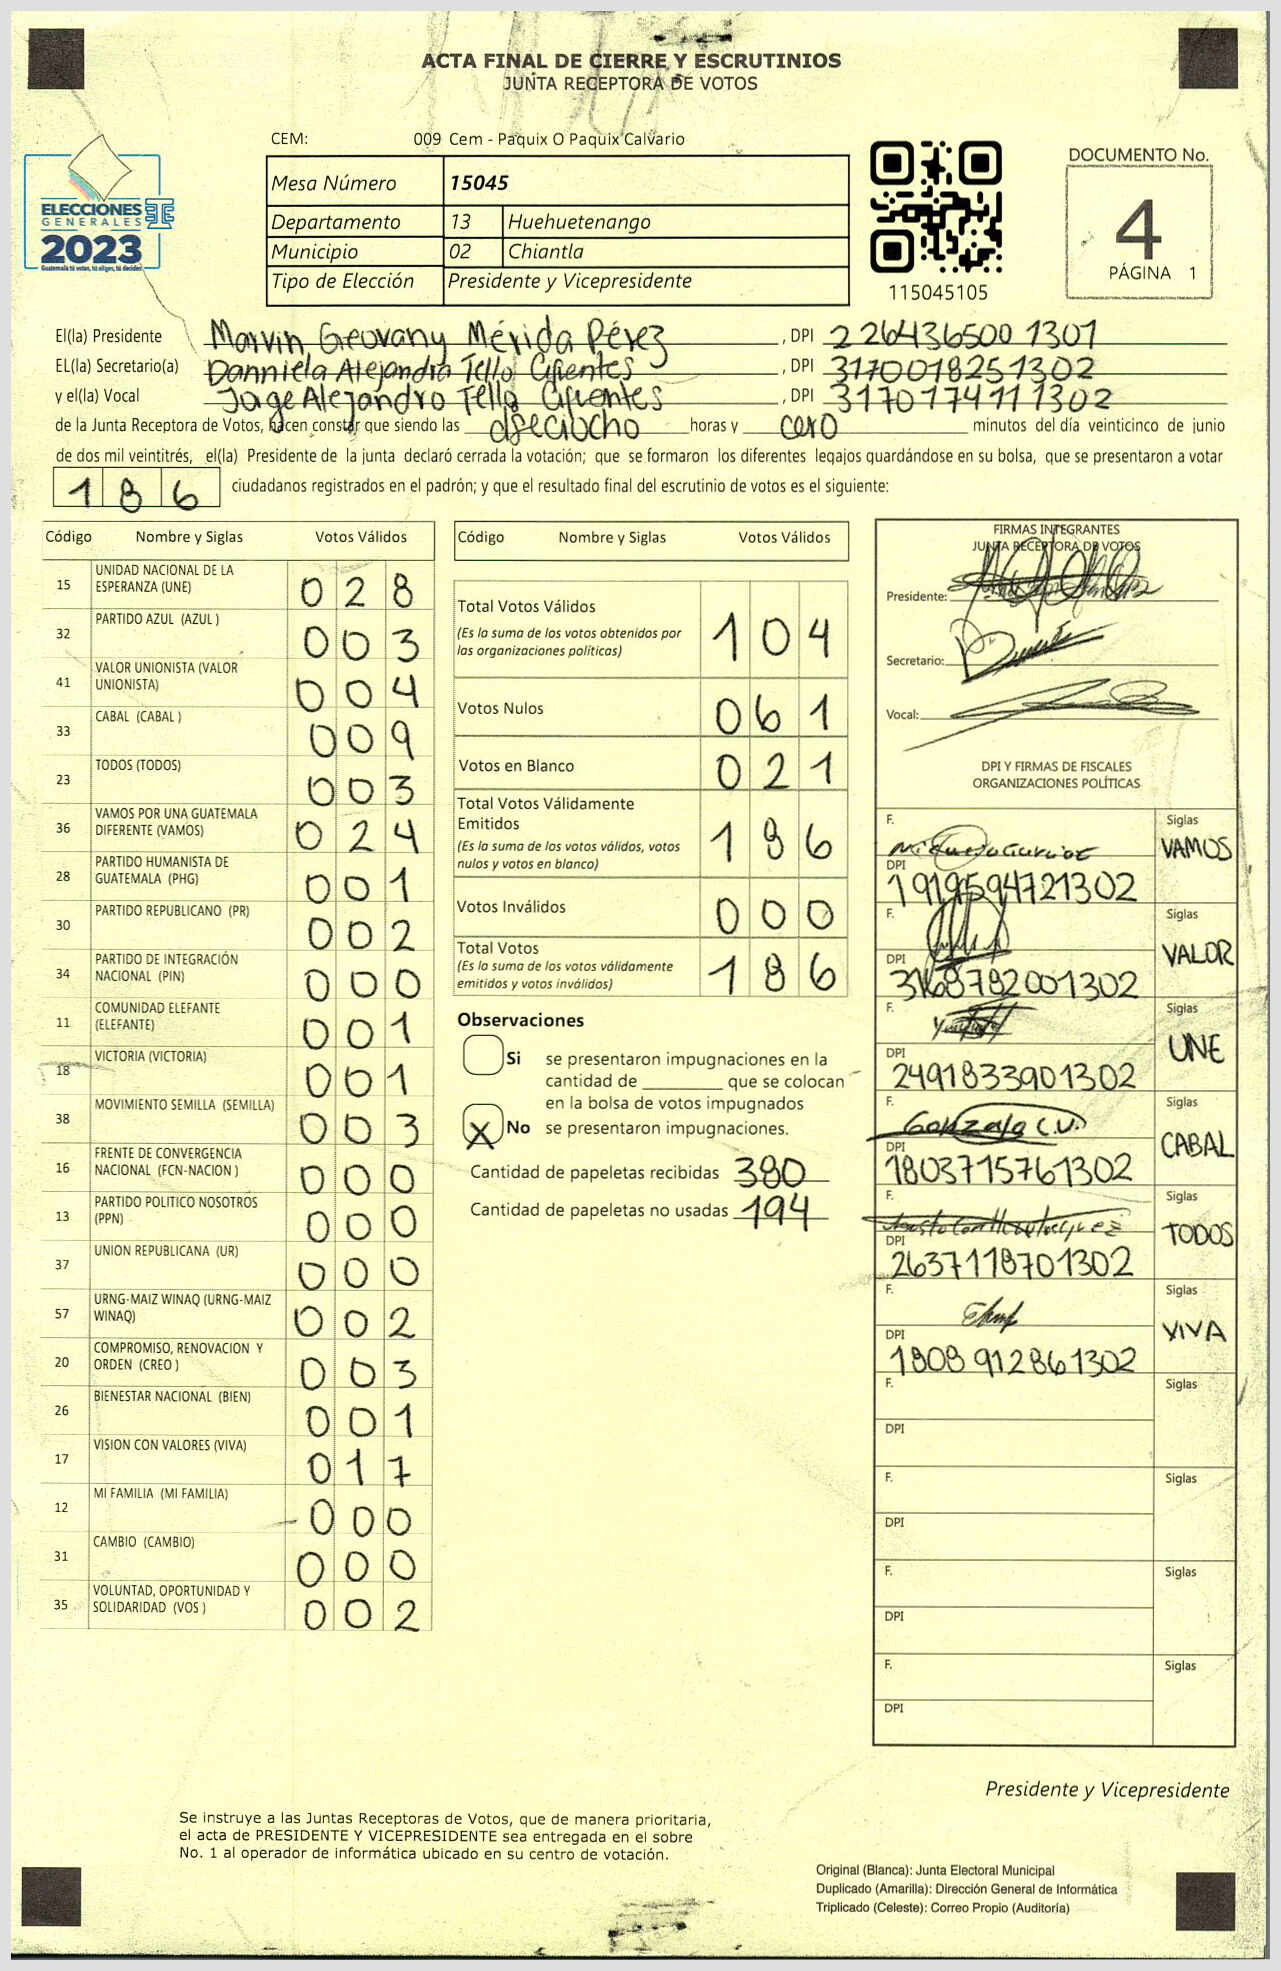 ACTA FINAL DE CIERRE Y ESCRUTINIOS
JUNTA RECEPTORA DE VOTOS
CEM: 009 Cem - Paquix O Paquix Calvario
Mesa Número 15045
Departamento 13 Huehuetenango
Municipio 02 Chiantla
Tipo de Elección Presidente y Vicepresidente
ELECCIONES
GENERALES
2023
Guatemala tú votas, tú eliges, tú decides
115045105
DOCUMENTO No.
4
PÁGINA 1
El(la) Presidente Marvin Geovany Mérida Pérez, DPI 2 26436500 1301
EL(la) Secretario(a) Danniela Alejandra Tello Cifuentes, DPI 3170018251302
y el(la) Vocal Jorge Alejandro Tello Cifuentes, DPI 3170174111302
de la Junta Receptora de Votos, hacen constar que siendo las dieciocho horas y cero minutos del día veinticinco de junio
de dos mil veintitrés, el(la) Presidente de la junta declaró cerrada la votación; que se formaron los diferentes legajos guardándose en su bolsa, que se presentaron a votar
186 ciudadanos registrados en el padrón; y que el resultado final del escrutinio de votos es el siguiente:
Código Nombre y Siglas Votos Válidos
15 UNIDAD NACIONAL DE LA ESPERANZA (UNE) 028
32 PARTIDO AZUL (AZUL ) 003
41 VALOR UNIONISTA (VALOR UNIONISTA) 004
33 CABAL (CABAL ) 009
23 TODOS (TODOS) 003
36 VAMOS POR UNA GUATEMALA DIFERENTE (VAMOS) 024
28 PARTIDO HUMANISTA DE GUATEMALA (PHG) 001
30 PARTIDO REPUBLICANO (PR) 002
34 PARTIDO DE INTEGRACIÓN NACIONAL (PIN) 000
11 COMUNIDAD ELEFANTE (ELEFANTE) 001
18 VICTORIA (VICTORIA) 001
38 MOVIMIENTO SEMILLA (SEMILLA) 003
16 FRENTE DE CONVERGENCIA NACIONAL (FCN-NACION ) 000
13 PARTIDO POLITICO NOSOTROS (PPN) 000
37 UNION REPUBLICANA (UR) 000
57 URNG-MAIZ WINAQ (URNG-MAIZ WINAQ) 002
20 COMPROMISO, RENOVACION Y ORDEN (CREO ) 003
26 BIENESTAR NACIONAL (BIEN) 001
17 VISION CON VALORES (VIVA) 017
12 MI FAMILIA (MI FAMILIA) 000
31 CAMBIO (CAMBIO) 000
35 VOLUNTAD, OPORTUNIDAD Y SOLIDARIDAD (VOS ) 002
Código Nombre y Siglas Votos Válidos
Total Votos Válidos 104
(Es la suma de los votos obtenidos por
las organizaciones políticas)
Votos Nulos 061
Votos en Blanco 021
Total Votos Válidamente
Emitidos 186
(Es la suma de los votos válidos, votos
nulos y votos en blanco)
Votos Inválidos 000
Total Votos 186
(Es la suma de los votos válidamente
emitidos y votos inválidos)
Observaciones
Si se presentaron impugnaciones en la
cantidad de ________ que se colocan
en la bolsa de votos impugnados
X No se presentaron impugnaciones.
Cantidad de papeletas recibidas 380
Cantidad de papeletas no usadas 194
FIRMAS INTEGRANTES
JUNTA RECEPTORA DE VOTOS
Presidente:
Secretario:
Vocal:
DPI Y FIRMAS DE FISCALES
ORGANIZACIONES POLÍTICAS
F. Siglas VAMOS
DPI 1919594721302
F. Siglas VALOR
DPI 3168782001302
F. Siglas UNE
DPI 2491833901302
F. Gonzalo C.V. Siglas CABAL
DPI 1803715761302
F. Siglas TODOS
DPI 2637118701302
F. Siglas VIVA
DPI 1808 912861302
F. Siglas
DPI
F. Siglas
DPI
F. Siglas
DPI
F. Siglas
DPI
Presidente y Vicepresidente
Se instruye a las Juntas Receptoras de Votos, que de manera prioritaria,
el acta de PRESIDENTE Y VICEPRESIDENTE sea entregada en el sobre
No. 1 al operador de informática ubicado en su centro de votación.
Original (Blanca): Junta Electoral Municipal
Duplicado (Amarilla): Dirección General de Informática
Triplicado (Celeste): Correo Propio (Auditoría)